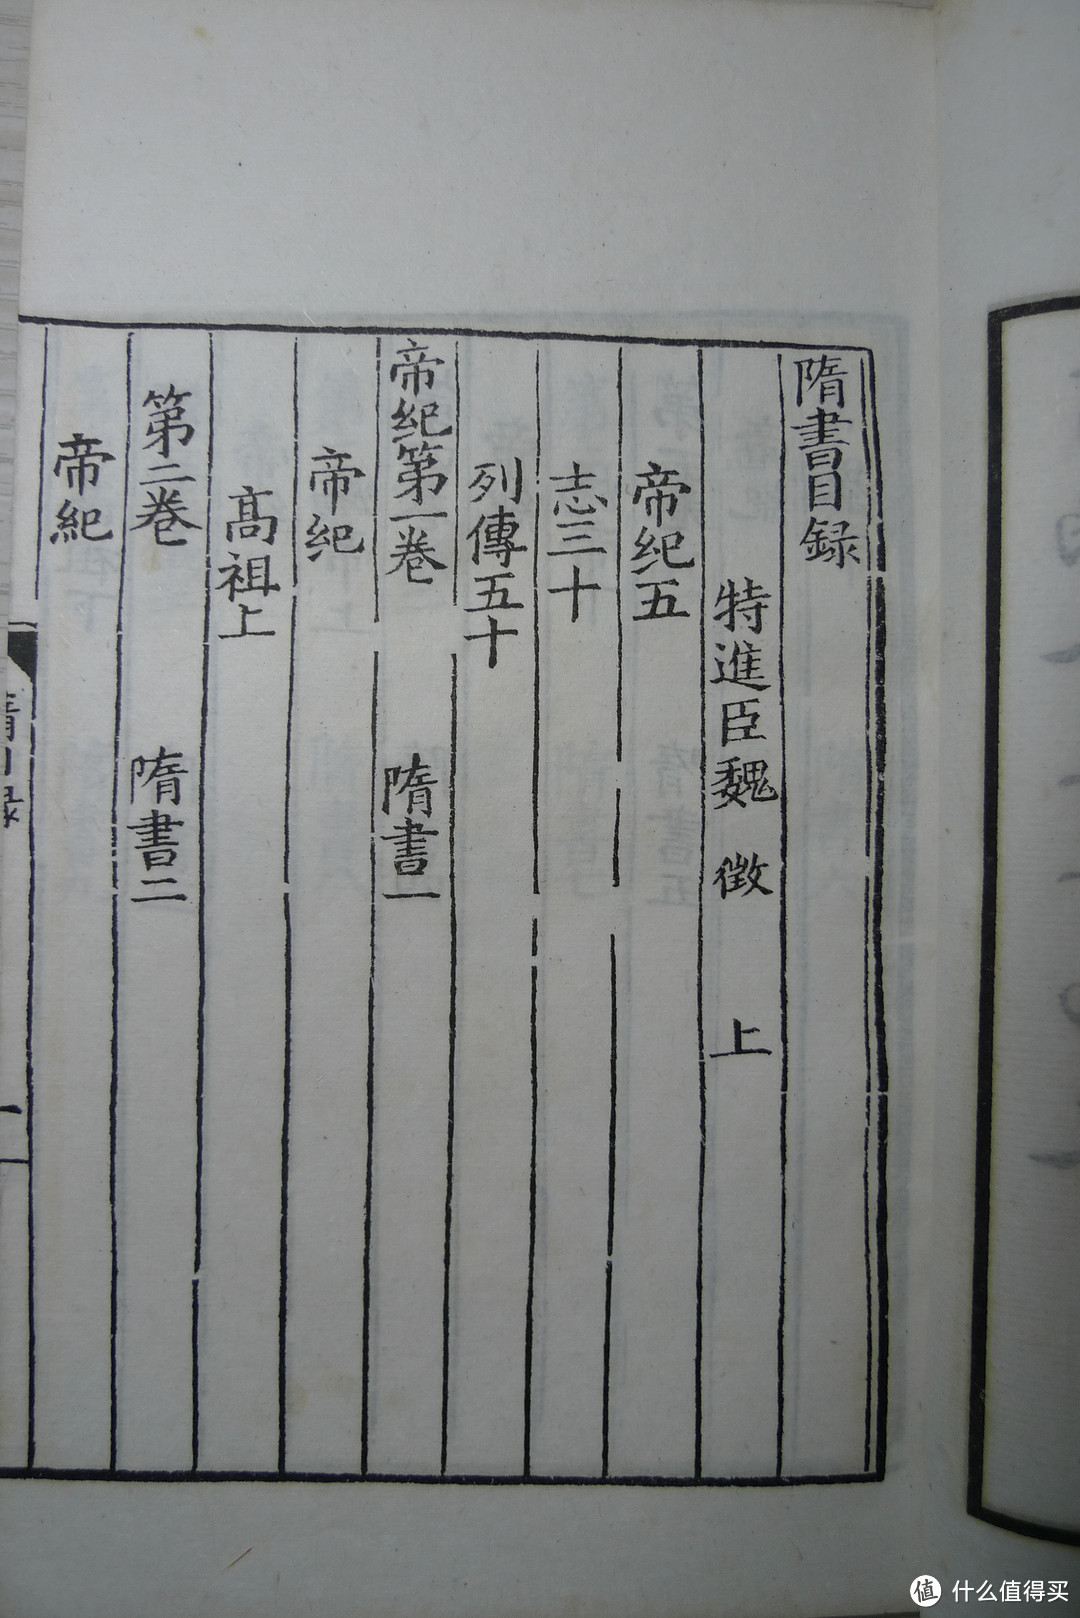 隋書目録
特進臣魏 徵 上
帝紀五
志三十
列傳五十
帝紀第一卷 隋書一
帝紀
髙祖上
第二卷 隋書二
帝紀
值 什么值得买